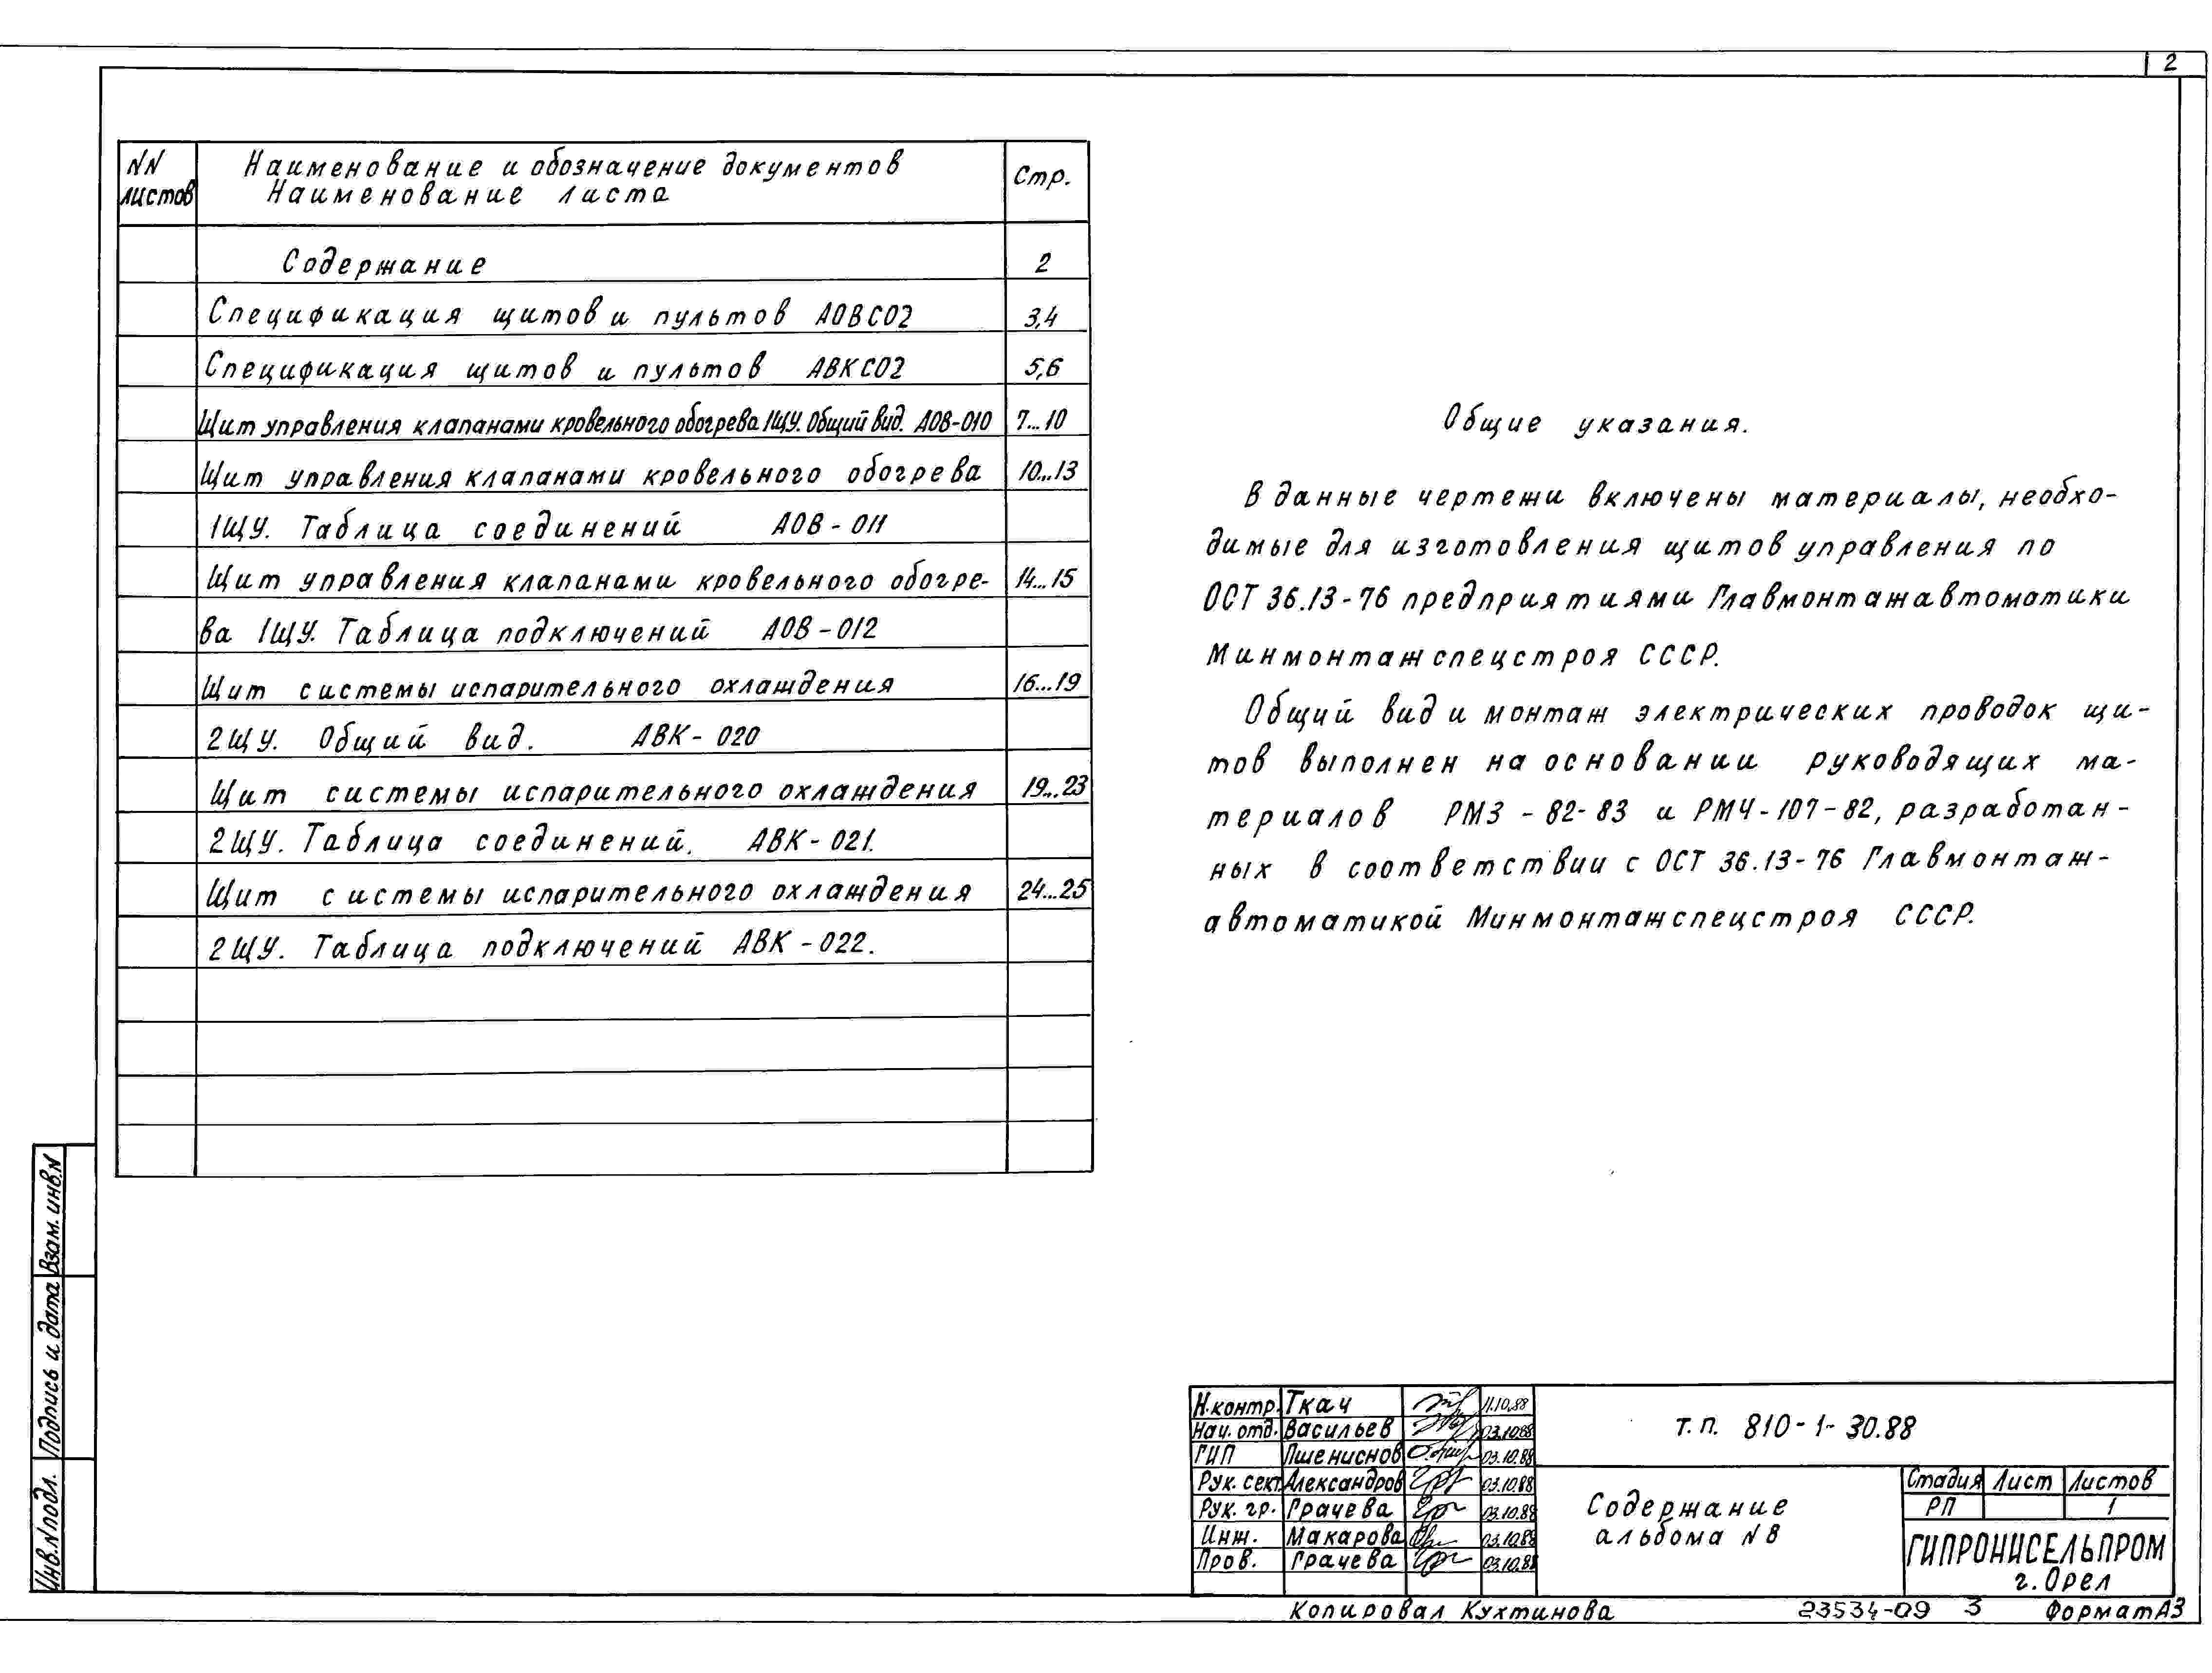 2
NN листов
Наименование и обозначение документов
Наименование листа
Стр.
Содержание 2
Спецификация щитов и пультов АОВСО2 3,4
Спецификация щитов и пультов АВКСО2 5,6
Щит управления клапанами кровельного обогрева 1ЩУ. Общий вид. АОВ-010 7...10
Щит управления клапанами кровельного обогрева 10...13
1ЩУ. Таблица соединений АОВ-011
Щит управления клапанами кровельного обогре- 14...15
ва 1ЩУ. Таблица подключений АОВ-012
Щит системы испарительного охлаждения 16...19
2ЩУ. Общий вид. АВК-020
Щит системы испарительного охлаждения 19...23
2ЩУ. Таблица соединений. АВК-021.
Щит системы испарительного охлаждения 24...25
2ЩУ. Таблица подключений АВК-022.
Общие указания.
В данные чертежи включены материалы, необхо-
димые для изготовления щитов управления по
ОСТ 36.13-76 предприятиями Главмонтажавтоматики
Минмонтажспецстроя СССР.
Общий вид и монтаж электрических проводок щи-
тов выполнен на основании руководящих ма-
териалов РМ3-82-83 и РМ4-107-82, разработан-
ных в соответствии с ОСТ 36.13-76 Главмонтаж-
автоматикой Минмонтажспецстроя СССР.
Взам. инв.N
Подпись и дата
Инв.N подл.
Н.контр. Ткач 11.10.88
Нач. отд. Васильев 03.10.88
ГИП Пшениснов 03.10.88
Рук. сект. Александров 03.10.88
Рук. гр. Грачева 03.10.88
Инж. Макарова 03.10.88
Пров. Грачева 03.10.88
т.п. 810-1-30.88
Содержание
альбома N8
Стадия Лист Листов
РП 1
ГИПРОНИСЕЛЬПРОМ
г. Орел
Копировал Кухтинова 23534-09 3 Формат А3